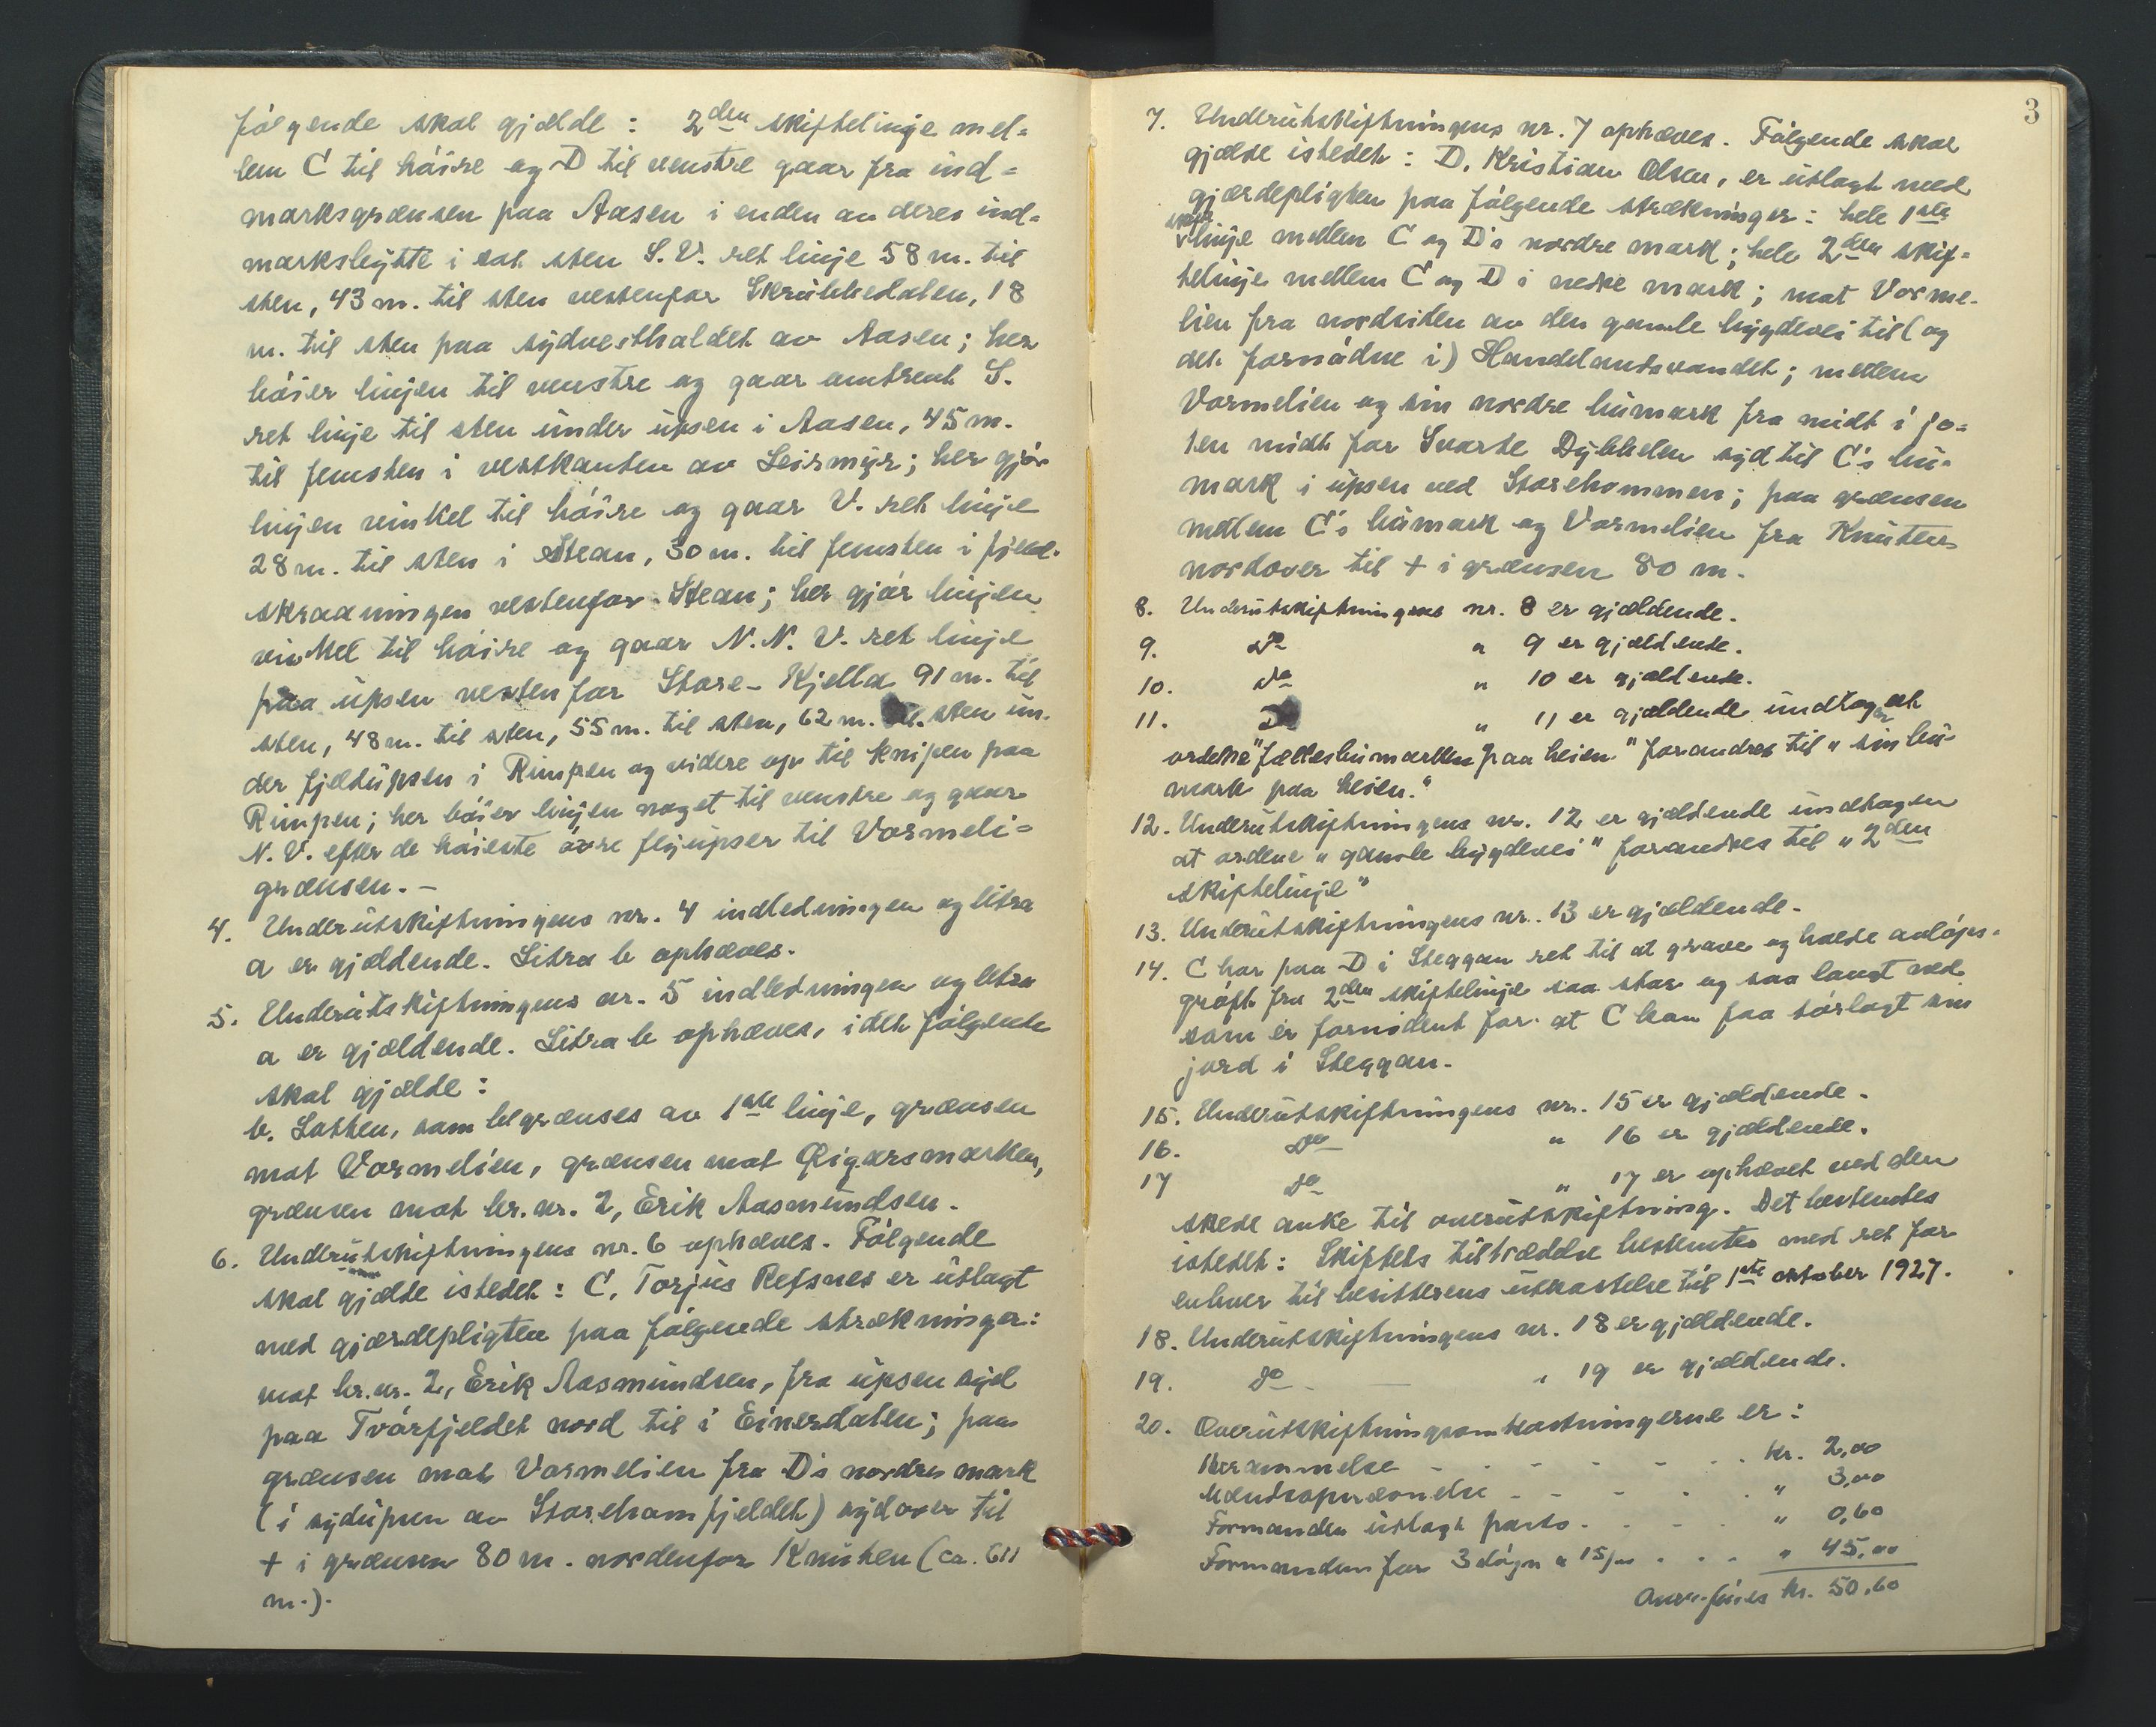 følgende skal gjælde: 2den skiftelinje mel=
lem C til høire og D til venstre gaar fra ind=
marksgrænsen paa Aasen i enden av deres ind=
marksbytte i sat sten S.V. ret linje 58 m. til
sten, 43 m. til sten vestenfor Skrubbedalen, 18
m. til sten paa sydvesthaldet av Aasen; her
bøier linjen til venstre og gaar omtrent S.
ret linje til sten under upsen i Aasen, 45 m.
til femsten i vestkanten av Leirmyr; her gjør
linjen vinkel til høire og gaar V. ret linje
28 m. til sten i Stean, 30 m. til femsten i fjeld-
skraaningen vestenfor Stean; her gjør linjen
vinkel til høire og gaar N.N.V. ret linje
paa upsen vestenfor Store-Kjella 91 m. til
sten, 48 m. til sten, 55 m. til sten, 62 m. til sten un-
der fjeldupsen i Rimpen og videre op til knipen paa
Rimpen; her bøier linjen noget til venstre og gaar
N.V. efter de høieste øvre flyupser til Vormeli=
grænsen. –
4. Underutskiftningens nr. 4 indledningen og litra
a er gjældende. Litra b ophæves.
5. Underutskiftningens nr. 5 indledningen og litra
a er gjældende. Litra b ophæves, idet følgende
skal gjælde:
b. Lotten, som begrænses av 1ste linje, grænsen
mot Vormelien, grænsen mot Qigarsmarken,
grænsen mot br.nr. 2, Erik Aasmundsen.
6. Underutskiftningens nr. 6 ophæves. Følgende
skal gjælde istedet: C, Torjus Refsnes er utlagt
med gjærdepligten paa følgende strækninger:
mot br.nr. 2, Erik Aasmundsen, fra upsen syd
paa Tvørfjeldet nord til i Einerdalen; paa
grænsen mot Vormelien fra D's nordre mark
(i sydupsen av Storehomfjeldet) sydover til
+ i grænsen 80 m. nordenfor Knuten (ca. 611
m.).
3
7. Underutskiftningens nr. 7 ophæves. Følgende skal
gjælde istedet: D, Kristian Olsen, er utlagt med
gjærdepligten paa følgende strækninger: hele 1ste
skifte
linje mellem C og D's nordre mark; hele 2den skif=
telinje mellem C og D i nedre mark; mot Vorme-
lien fra nordsiden av den gamle bygdevei til (og
det fornødne i) Handelandsvandet; mellem
Vormelien og sin nordre bumark fra midt i jo=
ten midt for Svarte Dybhelen syd til C's bu-
mark i upsen ved Storehommen; paa grænsen
mellem C's bumark og Vormelien fra Knuten
nordover til + i grænsen 80 m.
8. Underutskiftningens nr. 8 er gjældende.
9. do " 9 er gjældende.
10. do " 10 er gjældende.
11. Do " 11 er gjældende undtagen at
ordene "fællesbumarken paa heien" forandres til "sin bu-
mark paa heien."
12. Underutskiftningens nr. 12 er gjældende undtagen
at ordene "gamle bygdevei" forandres til "2den
skiftelinje"
13. Underutskiftningens nr. 13 er gjældende.
14. C har paa D i Steggan ret til at grave og holde avløps-
grøft fra 2den skiftelinje saa stor og saa langt ned
som er fornødent for at C kan faa tørlagt sin
jord i Steggan.
15. Underutskiftningens nr. 15 er gjældende.
16. do " 16 er gjældende.
17 do " 17 er ophævet ved den
skede anke til overutskiftning. Det bestemtes
istedet: Skiftets tiltrædelse bestemtes med ret for
enhver til besitterens utkastelse til 1ste oktober 1927.
18. Underutskiftningens nr. 18 er gjældende.
19. do – " 19 er gjældende.
20. Overutskiftningsomkostningerne er:
Berammelse - - - - - - - kr. 2,00
Mændsopnævnelse - - - - - " 3,00
Formanden utlagt porto - - - - " 0,60
Formanden for 3 døgn à 15/00 - - - " 45,00
Overføres kr. 50,60